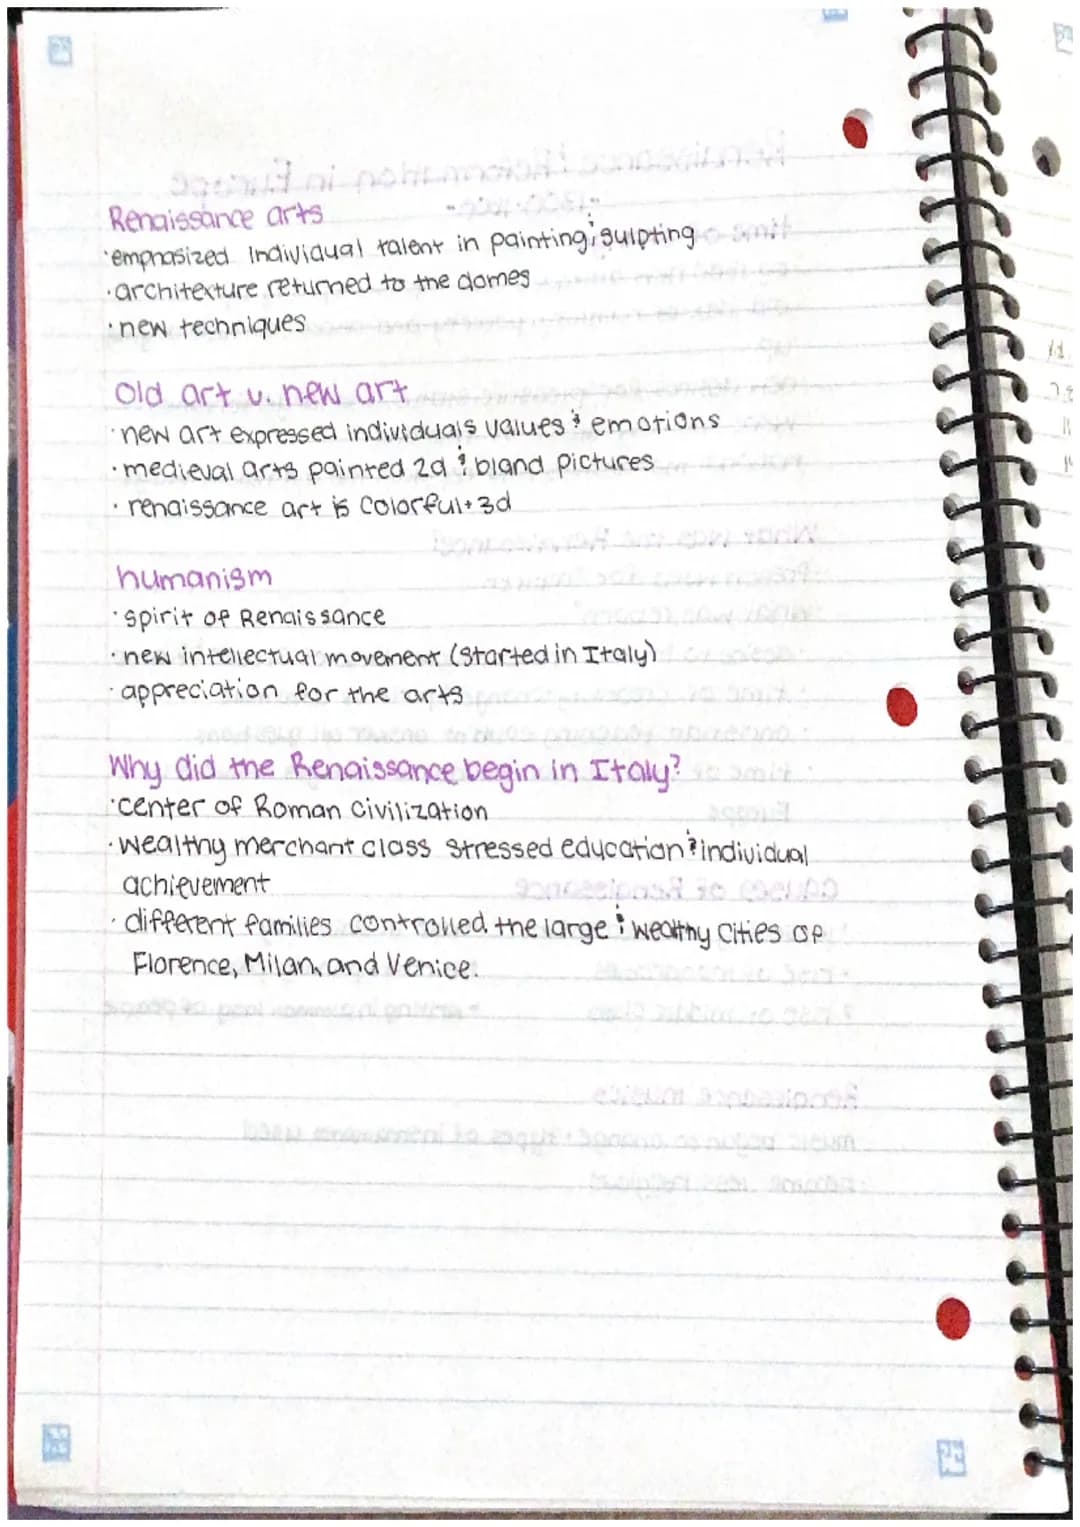 Renaissance arts
·emphasized individual talent in painting & sulpting
·architexture returned to the domes
·new techniques
Old art v. new art
·new art expressed individuals values & emotions
·medieval arts painted 2d & bland pictures
·renaissance art is colorful + 3d
humanism
·spirit of Renaissance
·new intellectual movement (started in Italy)
·appreciation for the arts
Why did the Renaissance begin in Italy?
·center of Roman Civilization
·wealthy merchant class stressed education & individual
achievement
·different families controlled the large & wealthy cities of
Florence, Milan, and Venice.